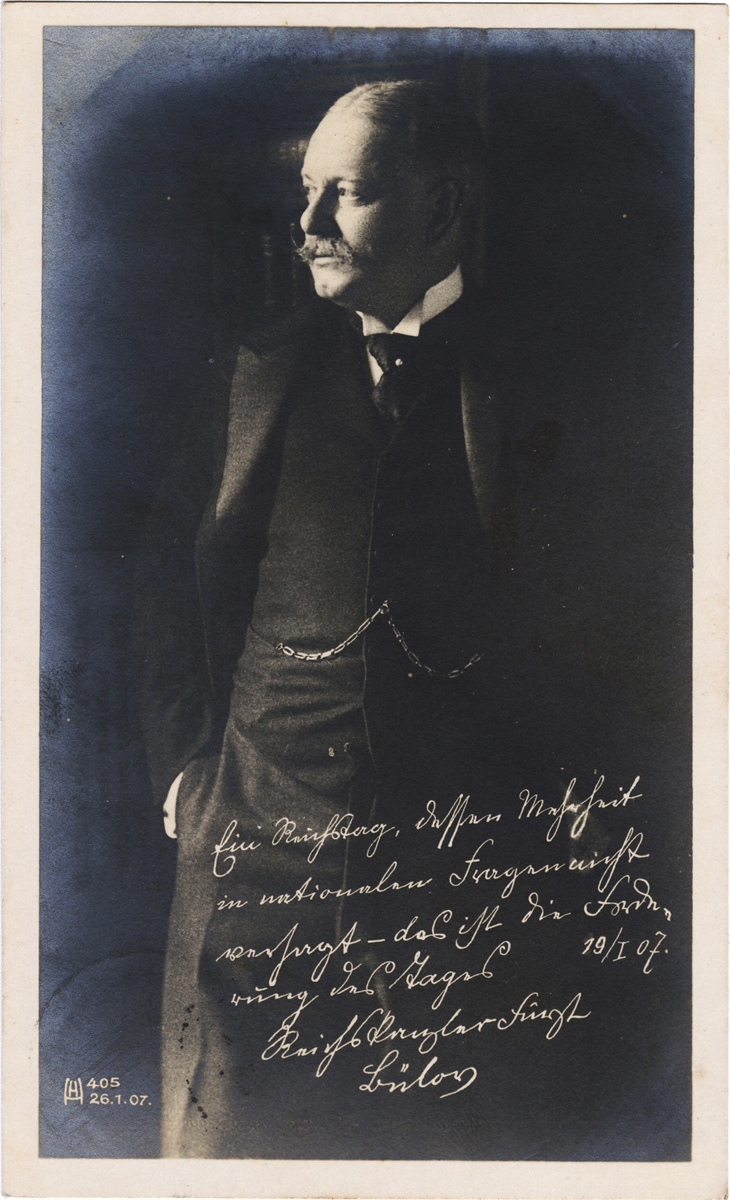 Ein Reichstag, dessen Mehrheit
in nationalen Fragen nicht
versagt – das ist die Forde-
rung des Tages 19/I 07.
Reichskanzler Fürst
Bülow
405
26.1.07.